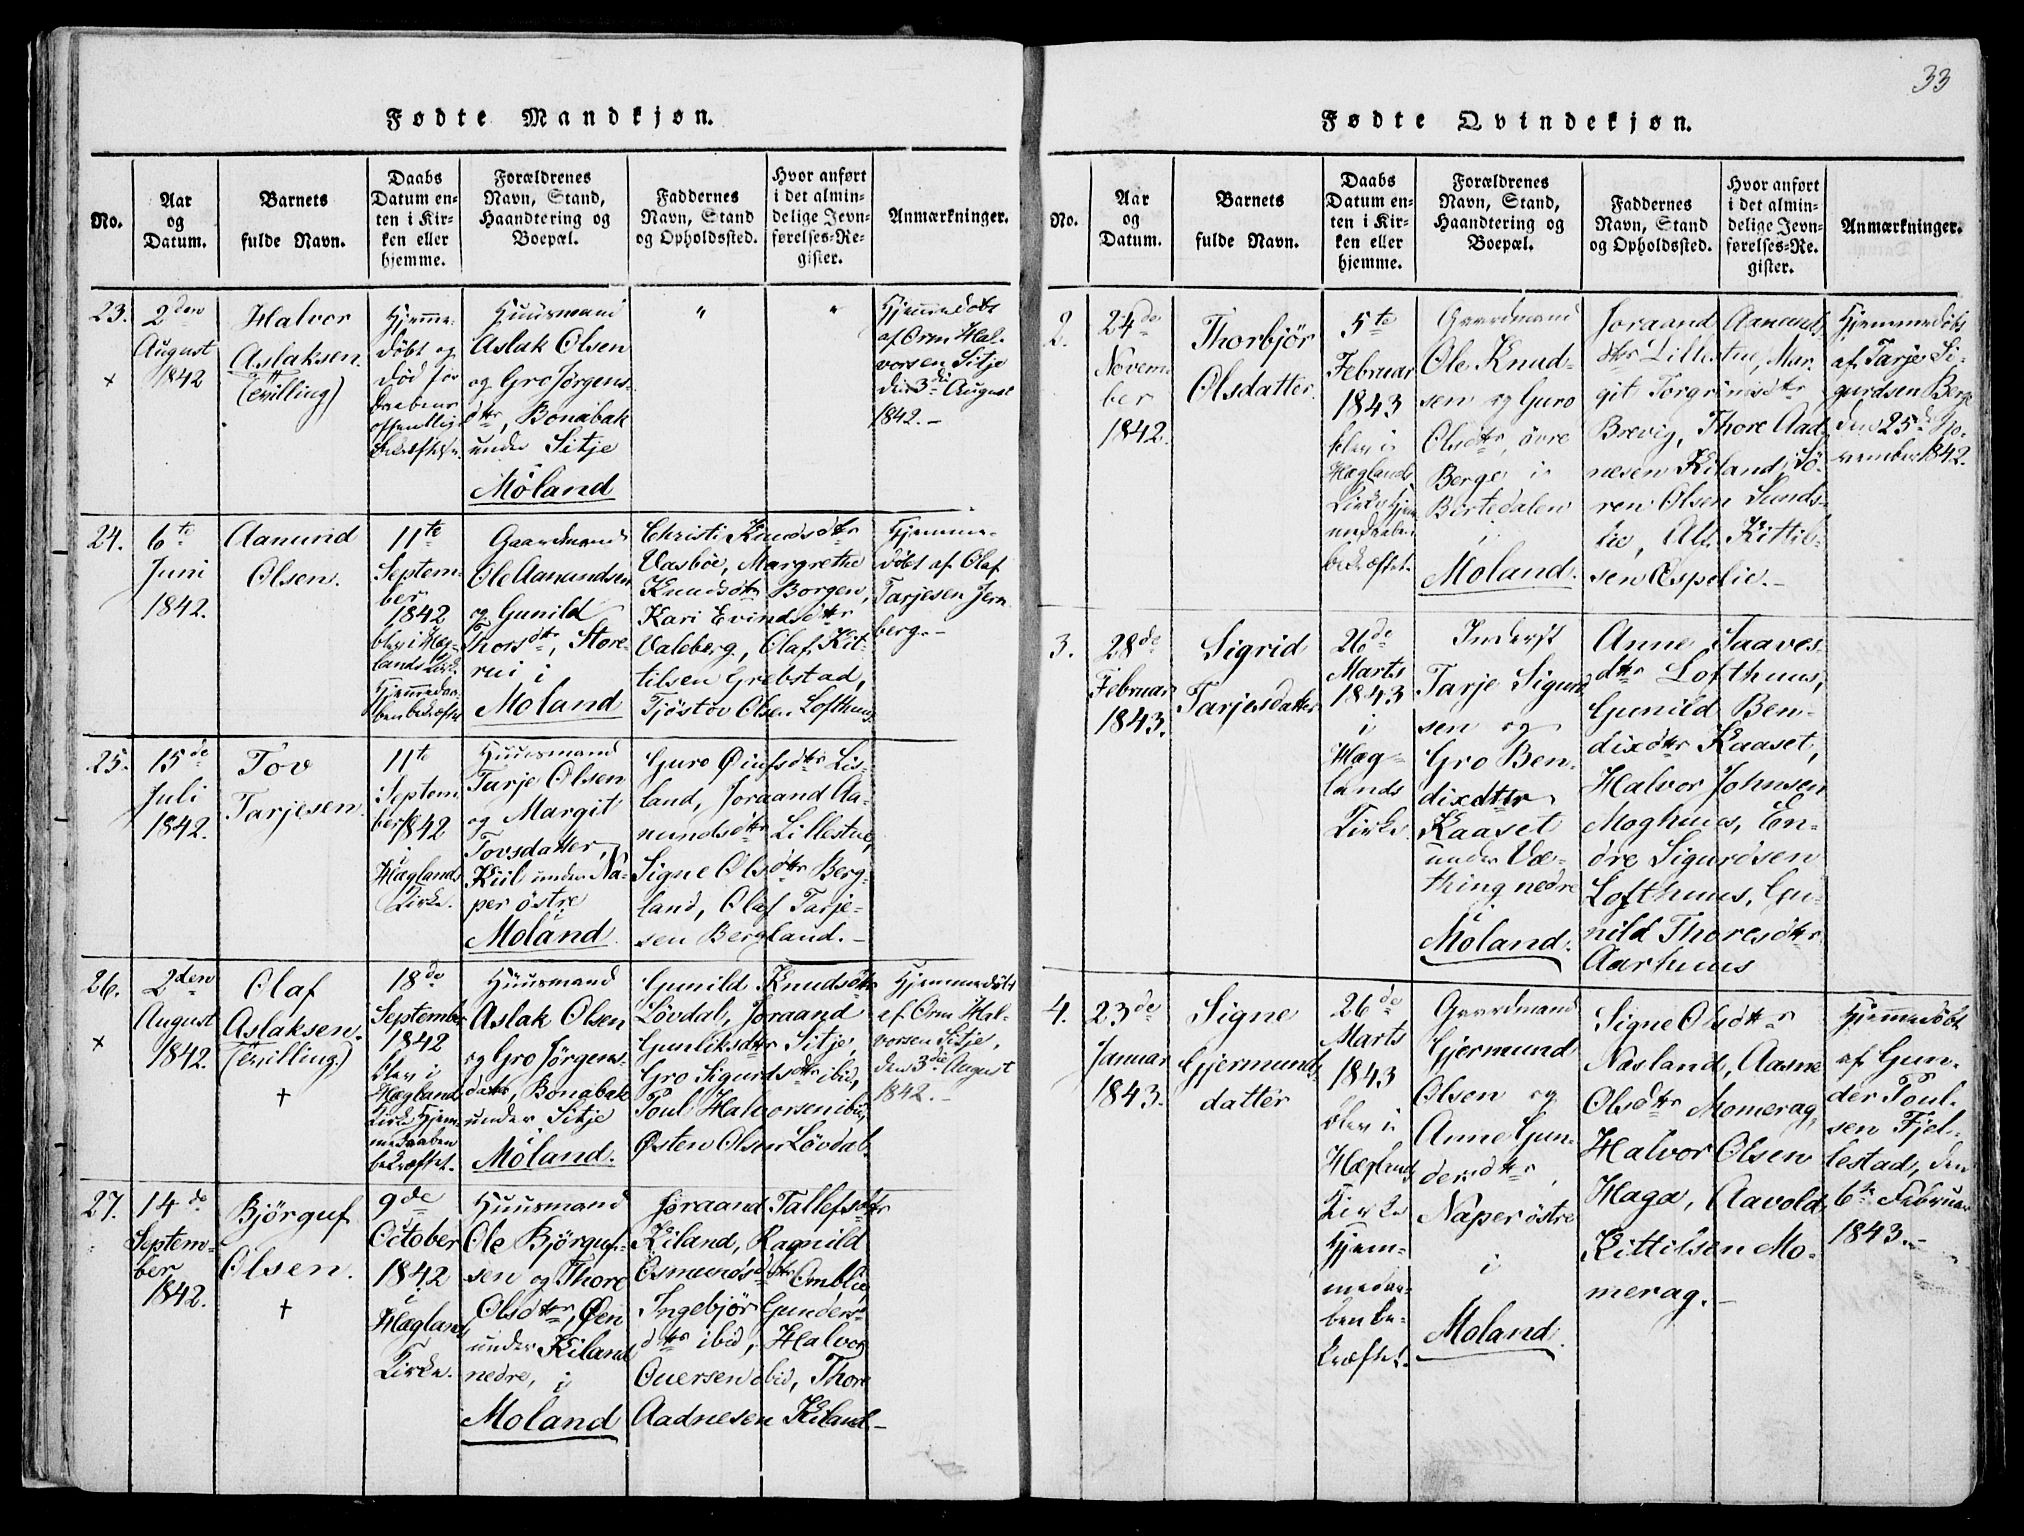 33
Fødte Mandkjøn.
No.
Aar
og
Datum.
Barnets
fulde Navn.
Daabs
Datum en-
ten i Kir-
ken eller
hjemme.
Forældrenes
Navn, Stand,
Haandtering og
Boepæl.
Faddernes
Navn, Stand
og Opholdssted.
Hvor anført
i det almin-
delige Jevn-
førelses-Re-
gister.
Anmærkninger.
23.
2den
August
1842
Halvor
Aslaksen.
(Tvilling)
Hjemme-
døbt og
død før
Daabens
offentlige
Bekræftelse.
Huusmand
Aslak Olsen
og Gro Jørgens-
dtr, Bonabak
under Sitje
i
Moland
"
"
Hjemmedøbt
af Orm Hal-
vorsen Sitje
den 3die August
1842.-
24.
6te
Juni
1842.
Aanund
Olsen.
11te
Septem-
ber
1842
blev i Hæg-
lands Kirke
Hjemmedaa-
ben bekræftet
Gaardmand
Ole Aanundsen
og Gunild
Thorsdtr, Store-
rui i
Moland
Christi Knudsdtr
Vasbøe, Margrethe
Knudsdtr Borgen,
Kari Evindsdtr
Valeberg, Olaf Kit-
tilsen Grebstad,
Tjøstov Olsen Lofthuus
Hjemme-
døbt af Olaf
Tarjesen Jern
berg.-
25.
15de
Juli
1842.
Tov
Tarjesen.
11te
Septem
ber 1842
i
Hæglands
Kirke.
Huusmand
Tarje Olsen
og Margit
Tovsdatter,
Kiil under Na-
per østre
i
Moland
Guro Øiufsdtr Lis-
land, Joraand Aa-
nundsdtr Lillestue,
Signe Olsdtr Berg-
land, Olaf Tarje-
sen Bergland.-
26.
2den
August
1842.
Olaf
Aslaksen.
(Tvilling)
†
18de
September
1842
blev i
Hægland
Kirke Hjem-
medaaben
bekræftet.
Huusmand
Aslak Olsen
og Gro Jørgens-
datr, Bonabak
under Sitje
i
Moland.
Gunild Knudsdtr
Løvdal, Joraand
Gunliksdtr Sitje,
Gro Sigurdsdtr ibid,
Poul Halvorsen ibid,
Østen Olsen Løvdal.
Hjemmedøbt
af Orm Hal-
vorsen Sitje,
den 3die August
1842.-
27.
14de
Septem-
ber
1842.
Bjørguf
Olsen.
†
9de
October
1842
i
Hægland
Kirke.
Huusmand
Ole Bjørguf-
sen og Thore
Olsdtr, Øen
under Kiland
nedre, i
Moland
Joraand Tallefsdtr
Kiland, Ragnild
Osmundsdtr Omblie,
Ingebjør Gunders-
dtr ibid, Halvor
Ouersen ibid, Thore
Aadnesen Kiland-
Fødte Qvindekjøn.
No.
Aar
og
Datum.
Barnets
fulde Navn.
Daabs
Datum en-
ten i Kir-
ken eller
hjemme.
Forældrenes
Navn, Stand,
Haandtering og
Boepæl.
Faddernes
Navn, Stand
og Opholdssted.
Hvor anført
i det almin-
delige Jevn-
førelses-Re-
gister.
Anmærkninger.
2.
24de
Novem
ber
1842.
Thorbjør
Olsdatter.
5te
Februar
1843
blev i
Hæglands
Kirke Hjem
medaaben
bekræftet.
Gaardmand
Ole Knud-
sen og Guro
Olsdtr, øvre
Berge i
Børtedalen
i
Moland.
Joraand Aanunds
dtr Lillestue, Mar-
git Torgrimsdtr
Brevig, Thore Aad-
nesen Kiland, Sø-
ren Olsen Sunds-
lie, Ah. Kittil-
sen Espelie.-
Hjemmedøbt
af Tarje Si-
gurdsen Berge
den 25de No-
vember 1842.
3.
28de
Februar
1843.
Sigrid
Tarjesdatter
26de
Marts
1843
i
Hæg-
lands
Kirke
Inderst
Tarje Sigurd
sen og
Gro Ben-
dixdttr
Kaaset
under Væ-
thing nedre
i
Moland.
Anne Taaves-
dtr Lofthuus,
Gunild Ben-
dixdtr Kaaset,
Halvor Johnsen
Moghuus, En-
dre Sigurdsen
Lofthuus, Gu-
nild Thoresdtr
Aarhuus
4.
23de
Januar
1843.
Signe
Gjermunds
datter
26de
Marts
1843
blev i
Hægland
Kirke
Hjem-
medaa-
ben be-
kræftet.
Gaardmand
Gjermund
Olsen og
Anne Gun-
dersdtr,
Naper østre
i
Moland.
Signe Olsdtr
Nasland, Aasne
Olsdtr Momerag,
Halvor Olsen
Haga, Aavold
Kittilsen Mo-
merag.-
Hjemmedøbt
af Gun-
der Poul-
sen Fjel-
lestad, den
6te Februar
1843.-